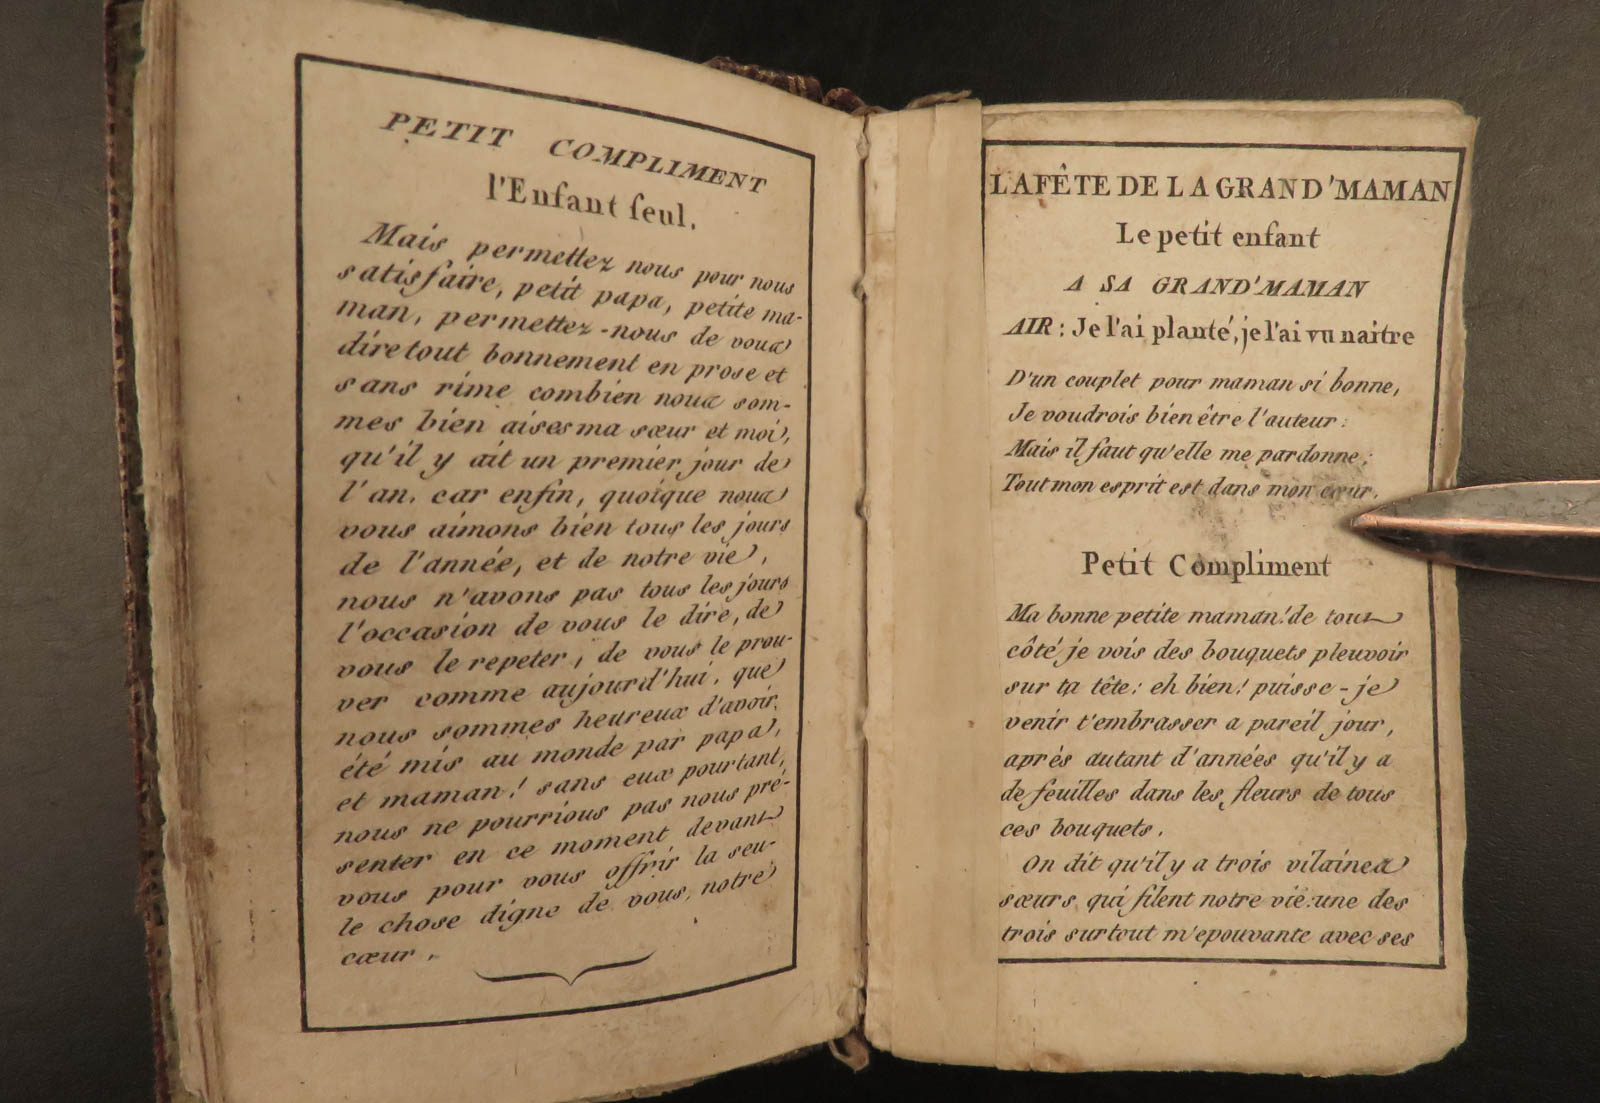 PETIT COMPLIMENT
l'Enfant seul.
Mais permettez nous pour nous
satisfaire, petit papa, petite ma-
man, permettez-nous de vous
dire tout bonnement en prose et
sans rime combien nous som-
mes bien aises ma sœur et moi,
qu'il y ait un premier jour de
l'an. car enfin, quoique nous
vous aimons bien tous les jours
de l'année, et de notre vie,
nous n'avons pas tous les jours
l'occasion de vous le dire, de
vous le repeter, de vous le prou-
ver comme aujourd'hui. que
nous sommes heureux d'avoir
été mis au monde par papa,
et maman! sans eux pourtant,
nous ne pourrions pas nous pré-
senter en ce moment devant
vous pour vous offrir la seu-
le chose digne de vous, notre
cœur.
LA FÊTE DE LA GRAND'MAMAN
Le petit enfant
A SA GRAND'MAMAN
AIR: Je l'ai planté, je l'ai vu naitre
D'un couplet pour maman si bonne,
Je voudrois bien être l'auteur:
Mais il faut qu'elle me pardonne;
Tout mon esprit est dans mon cœur.
Petit Compliment
Ma bonne petite maman! de tout
côté je vois des bouquets pleuvoir
sur ta tête: eh bien! puisse-je
venir t'embrasser a pareil jour,
aprés autant d'années qu'il y a
de feuilles dans les fleurs de tous
ces bouquets.
On dit qu'il y a trois vilaines
sœurs qui filent notre vie: une des
trois surtout m'epouvante avec ses